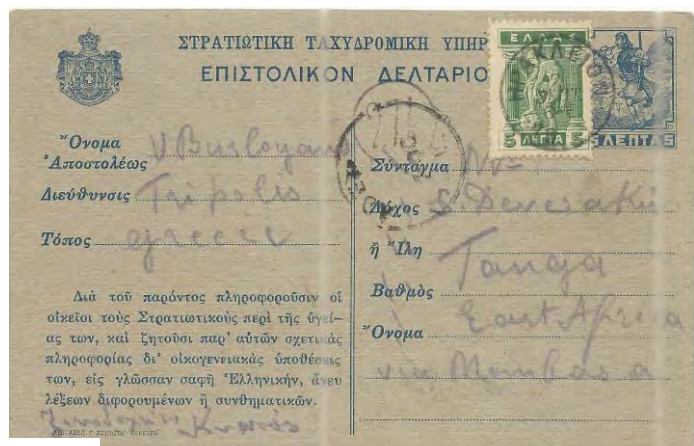 ΣΤΡΑΤΙΩΤΙΚΗ ΤΑΧΥΔΡΟΜΙΚΗ ΥΠΗΡ
ΕΠΙΣΤΟΛΙΚΟΝ ΔΕΛΤΑΡΙΟ
ΕΛΛΑΣ
5 ΛΕΠΤΑ 5
5 ΛΕΠΤΑ 5
Ὄνομα
Ἀποστολέως
Διεύθυνσις Tripolis
Τόπος greece
Διὰ τοῦ παρόντος πληροφοροῦσιν οἱ
οἰκεῖοι τοὺς Στρατιωτικοὺς περὶ τῆς ὑγεί-
ας των, καὶ ζητοῦσι παρ' αὐτῶν σχετικὰς
πληροφορίας δι' οἰκογενειακὰς ὑποθέσεις
των, εἰς γλῶσσαν σαφῆ Ἑλληνικήν, ἄνευ
λέξεων διφορουμένων ἢ συνθηματικῶν.
Σύνταγμα Mr
Λόχος
ἢ Ἴλη Tanga
Βαθμὸς East Africa
Ὄνομα via Mombasa